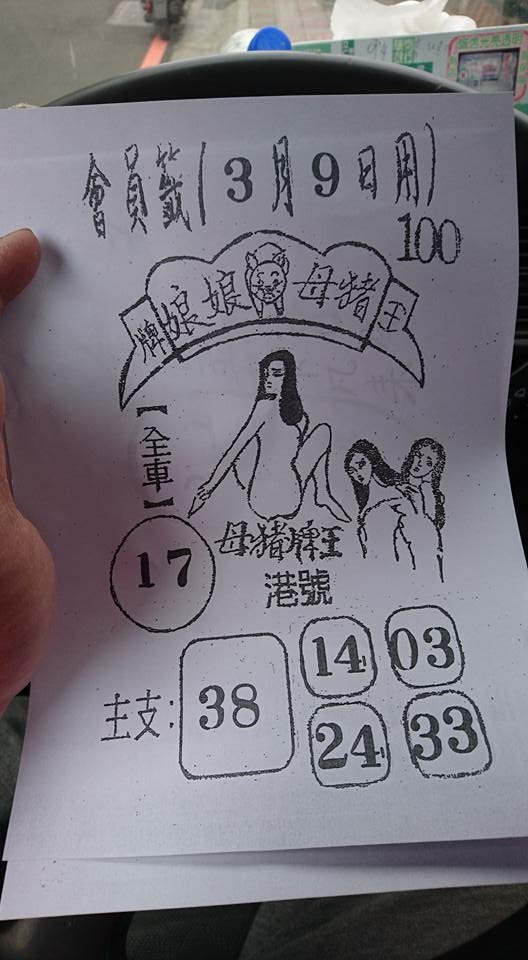 會員籤(3月9日用)
100
牌娘娘母猪王
【全車】
17
母猪牌王
港號
主支:38
14 03
24 33